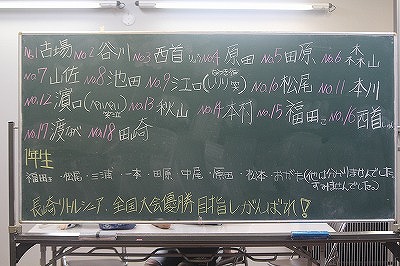 No.1 古場 No.2 谷川 No.3 西首 No.4 原田 No.5 田原 No.6 森山
No.7 山佐 No.8 池田 No.9 江口 No.10 松尾 No.11 本川
No.12 濵口 No.13 秋山 No.14 本村 No.15 福田 No.16 西首
No.17 渡 No.18 田崎
1年生
福田 ・松尾 ・三浦 ・一本 ・田原 ・中尾 ・原田 ・松本 (他は分かりませんでした。
すみませんでした。)
長崎リトルシニア 全国大会優勝目指しがんばれ!